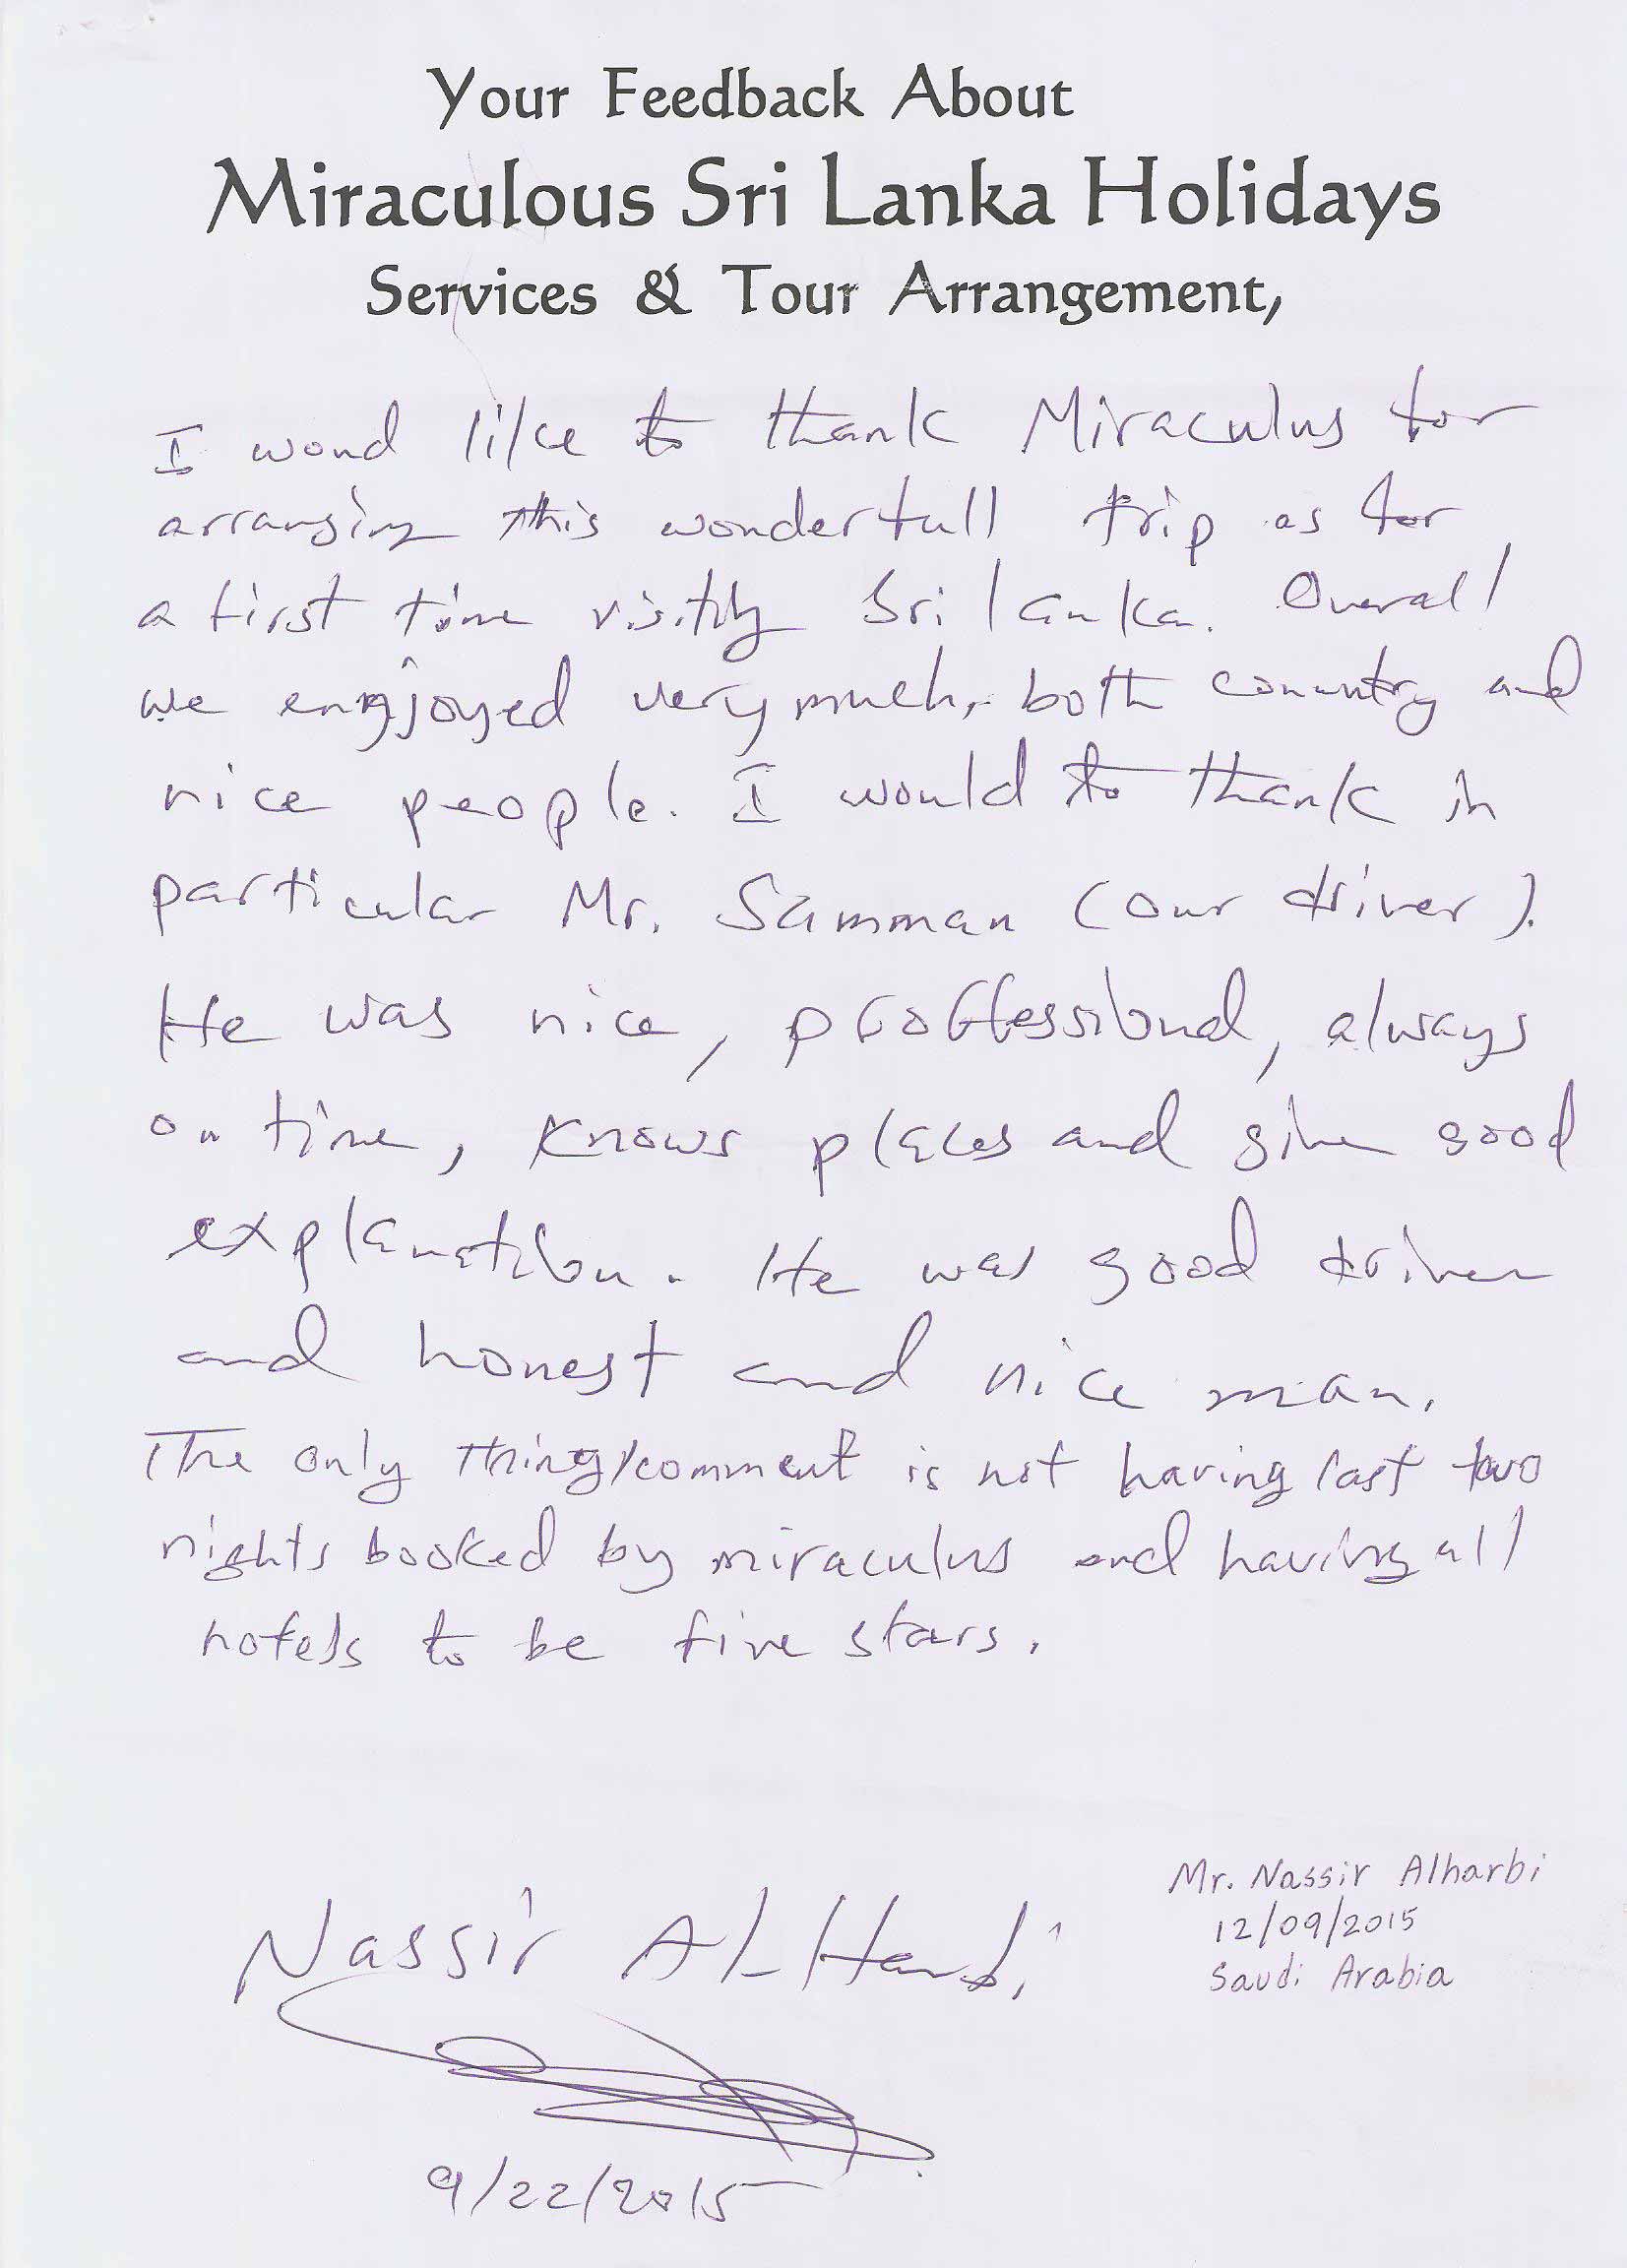 Your Feedback About
Miraculous Sri Lanka Holidays
Services & Tour Arrangement,
I woud like to thank Miraculus for
arranging this wonderfull trip as for
a first time visiting Sri lanka. Overall
we engjoyed very much, both conuntry and
nice people. I would to thank in
particular Mr. Samman (our driver).
He was nice, proffessional, always
on time, knows places and give good
explanation. He was good driver
and honest and nice man.
The only thing/comment is not having last two
nights booked by miraculus and having all
hotels to be five stars.
Mr. Nassir Alharbi
12/09/2015
Saudi Arabia
Nassir Al-Harbi
9/22/2015